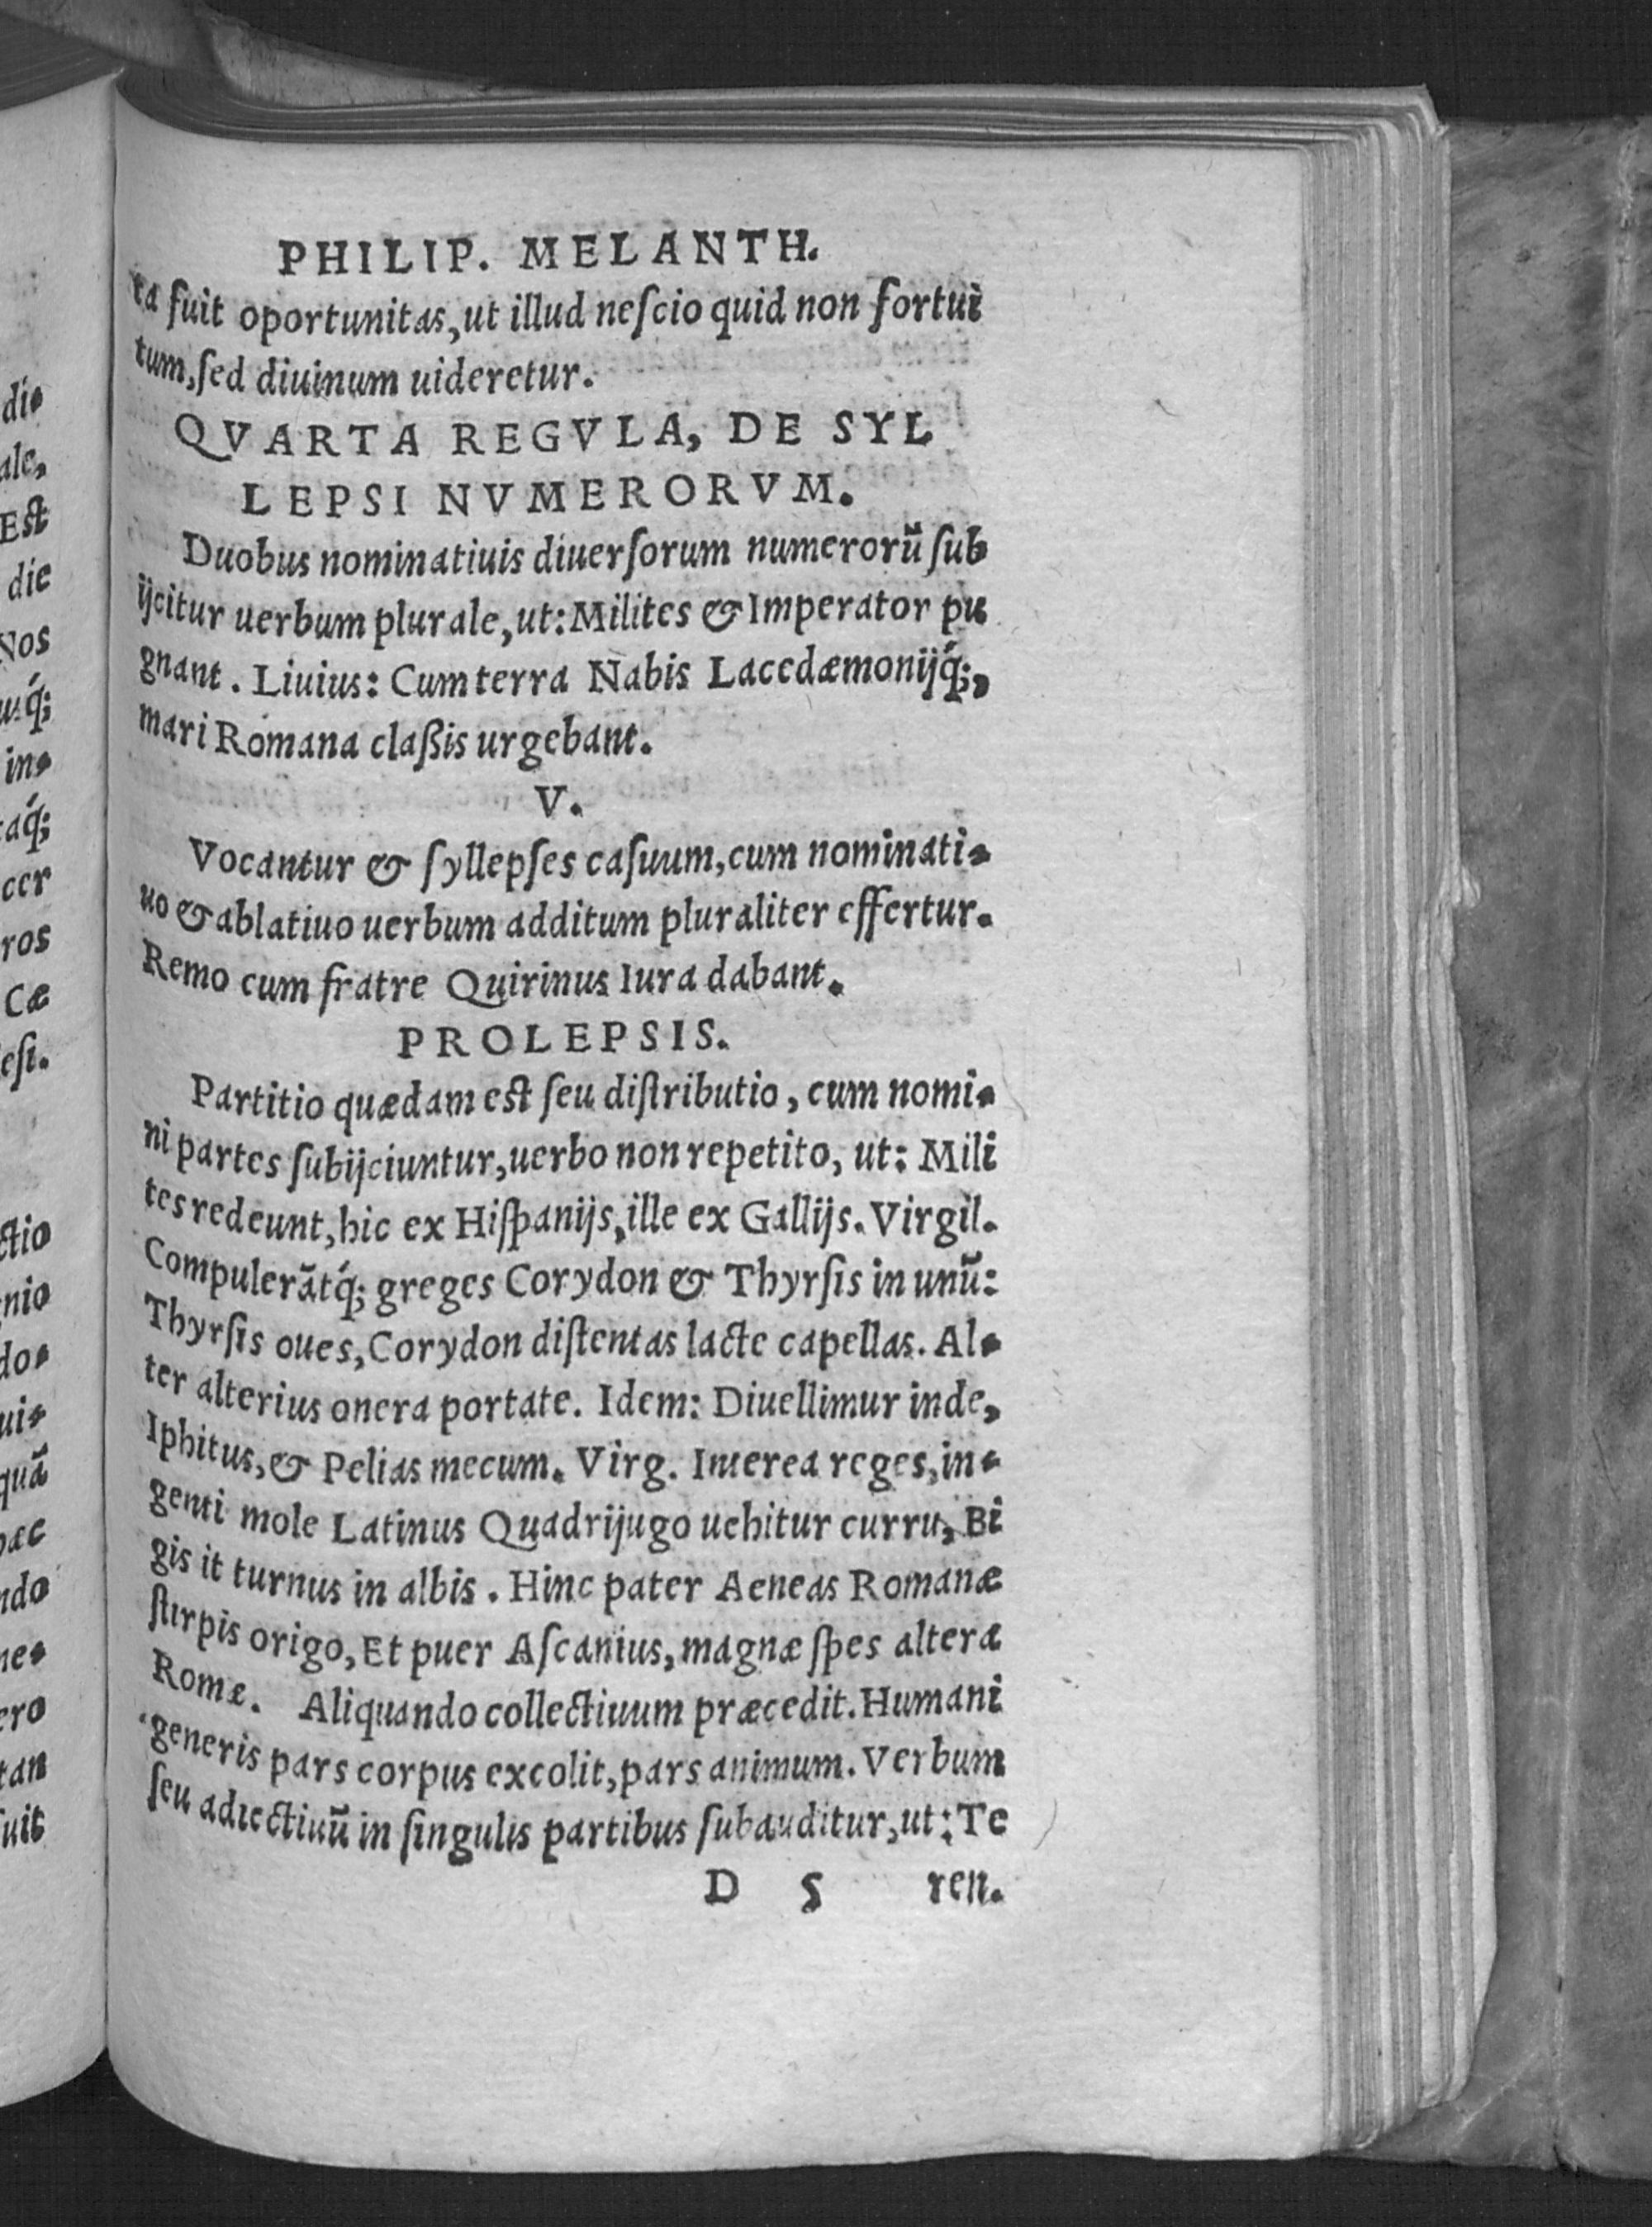 PHILIP. MELANTH.
ta fuit oportunitas, ut illud neſcio quid non fortui
tum, ſed diuinum uideretur.
QVARTA REGVLA, DE SYL
LEPSI NVMERORVM.
Duobus nominatiuis diuerſorum numerorũ ſub
ijcitur uerbum plurale, ut: Milites & Imperator pu
gnant. Liuius: Cum terra Nabis Lacedæmonijq́;,
mari Romana claßis urgebant.
V.
Vocantur & ſyllepſes caſuum, cum nominati-
uo & ablatiuo uerbum additum pluraliter effertur.
Remo cum fratre Quirinus Iura dabant.
PROLEPSIS.
Partitio quædam est ſeu diſtributio, cum nomi-
ni partes ſubijciuntur, uerbo non repetito, ut: Mili
tes redeunt, hic ex Hiſpanijs, ille ex Gallijs. Virgil.
Compulerãtq́; greges Corydon & Thyrſis in unũ:
Thyrſis oues, Corydon diſtentas lacte capellas. Al-
ter alterius onera portate. Idem: Diuellimur inde,
Iphitus, & Pelias mecum. Virg. Interea reges, in-
genti mole Latinus Quadrijugo uehitur curru, Bi
gis it turnus in albis. Hinc pater Aeneas Romanæ
ſtirpis origo, Et puer Aſcanius, magnæ ſpes altera
Romæ. Aliquando collectiuum præcedit. Humani
generis pars corpus excolit, pars animum. Verbum
ſeu adiectiuũ in ſingulis partibus ſubauditur, ut: Te
D 5 ren.